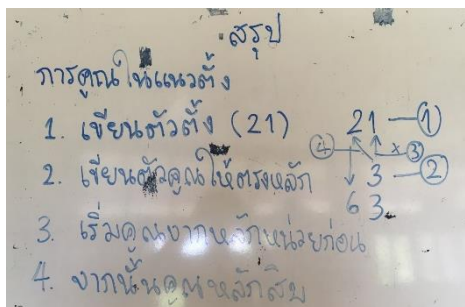 สรุป
การคูณในแนวตั้ง
1. เขียนตัวตั้ง (21)
2. เขียนตัวคูณให้ตรงหลัก
3. เริ่มคูณจากหลักหน่วยก่อน
4. จากนั้นคูณหลักสิบ
21 ①
④ × ③
3 ②
63